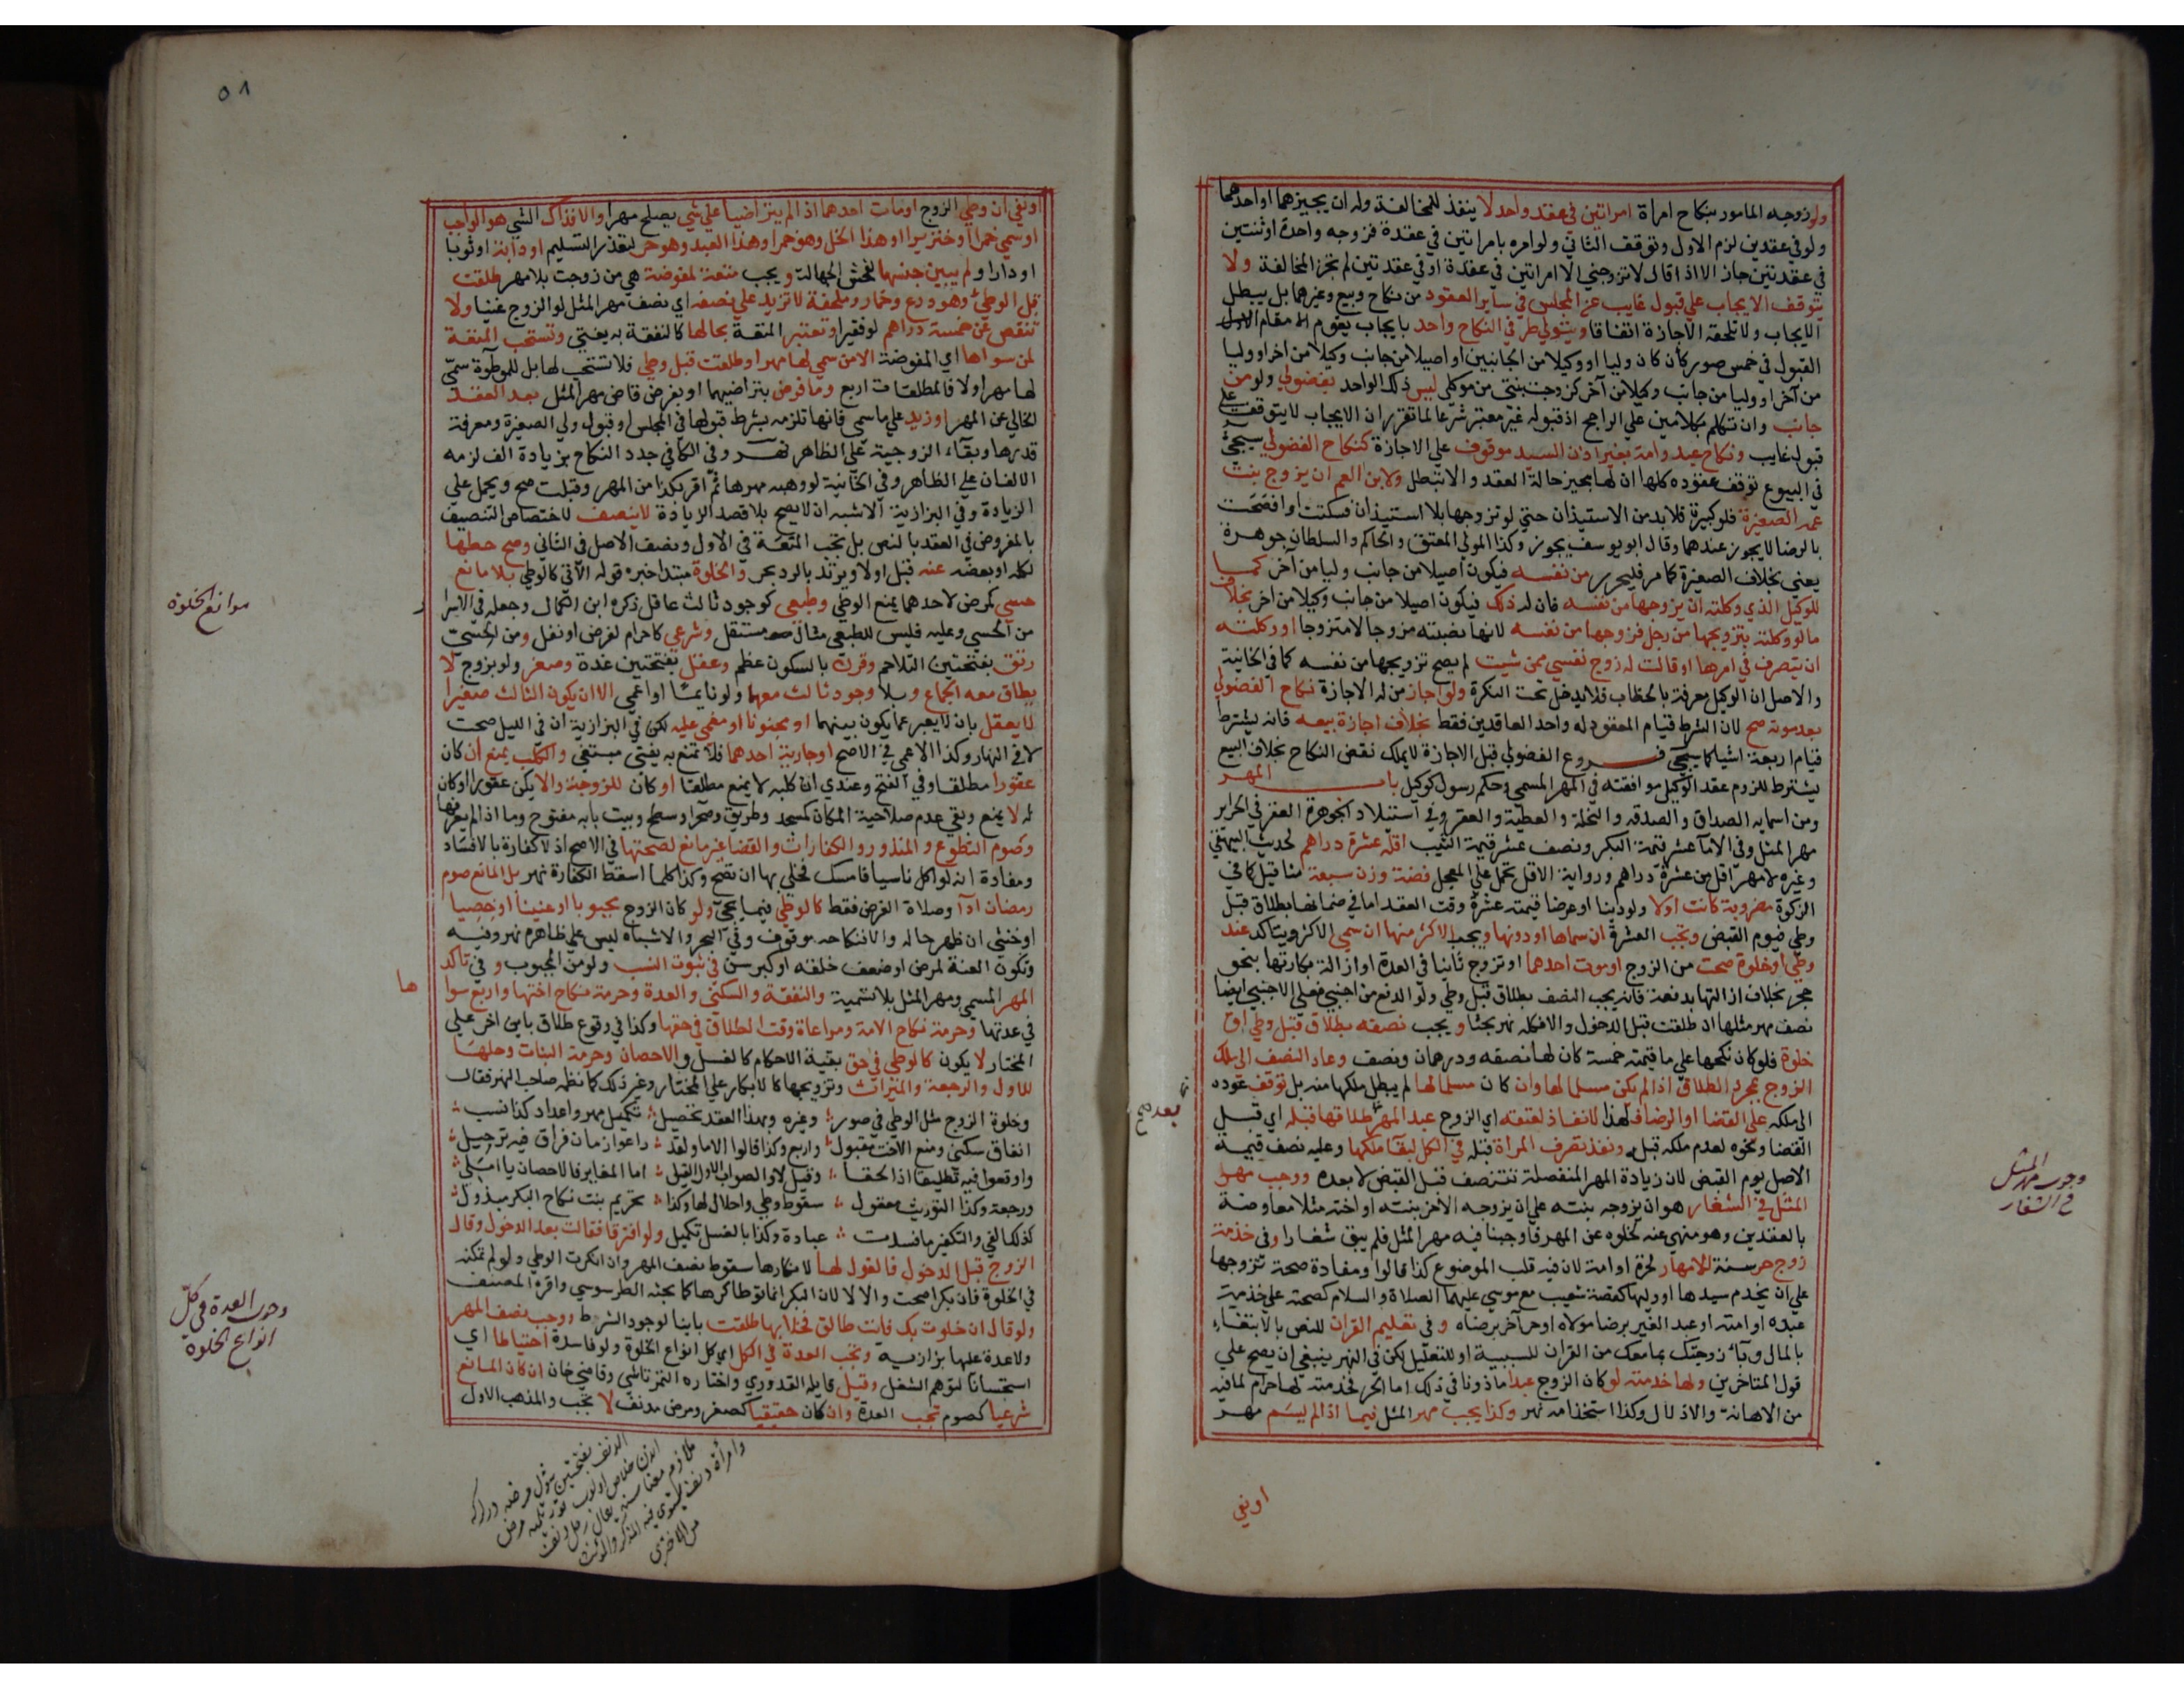 ولو زوجه المامور بنكاح امراة امراتين في عقد واحد لا ينفذ للمخالفة وله ان يجيزهما او احدهما
ولو في عقدين لزم الاول وتوقف الثاني ولو امره بامراتين في عقدة فزوجه واحدة او ثنتين
في عقدتين جاز الا اذا قال لا تزوجني الا امراتين في عقدة او في عقدتين لم تجز المخالفة ولا
يتوقف الايجاب على قبول غايب عن المجلس في ساير العقود من نكاح وبيع وغيرهما بل يبطل
الايجاب ولا تلحقه الاجازة اتفاقا ويتولي طرفي النكاح واحد بايجاب يقوم مقام
القبول في خمس صور كأن كان وليا او وكيلا من الجانبين او اصيلا من جانب وكيلا من اخر او وليا
من آخر او وليا من جانب وكيلا من آخر كزوجت بنتي من موكلي ليس ذلك الواحد بفضولي ولو من
جانب وان تكلم بكلامين علي الراجح اذ قبوله غير معتبر شرعا لما تقرر ان الايجاب لا يتوقف علي
قبول غايب ونكاح عبد وامة بغير اذن السيد موقوف علي الاجازة كنكاح الفضولي سيجيء
في البيوع توقف عقوده كلها ان لها مجيز حالة العقد والا تبطل ولابن العم ان يزوج بنت
عمه الصغيرة فلو كبيرة فلا بد من الاستيذان حتي لو تزوجها بلا استيذان فسكتت او افصحت
بالرضا لا يجوز عندهما وقال ابو يوسف يجوز وكذا المولي المعتق والحاكم والسلطان جوهرة
يعني بخلاف الصغيرة كما مر فليحرر من نفسه فيكون اصيلا من جانب وليا من آخر كما
للوكيل الذي وكلته ان يزوجها من نفسه فان له ذلك فيكون اصيلا من جانب وكيلا من اخر بخلاف
ما لو وكلته بتزويجها من رجل فزوجها من نفسه لانها نصبته مزوجا لا متزوجا او وكلته
ان يتصرف في امرها او قالت له زوج نفسي ممن شيت لم يصح تزويجها من نفسه كما في الخانية
والاصل ان الوكيل معرفة بالخطاب فلا يدخل تحت النكرة ولو اجاز من له الاجازة نكاح الفضولي
بعد موته صح لان الشرط قيام المعقود له واحد العاقدين فقط بخلاف اجازة بيعه فانه يشترط
قيام اربعة اشيا كما سيجي فروع الفضولي قبل الاجازة لا يملك نقض النكاح بخلاف البيع
يشترط للزوم عقد الوكيل موافقته في المهر المسمي وحكم رسول كوكيل باب المهر
ومن اسمايه الصداق والصدقه والنحلة والعطية والعقر وفي استيلاد الجوهرة العقر في الحراير
مهر المثل وفي الاما عشر قيمة البكر ونصف عشر قيمة الثيب اقله عشرة دراهم لحديث البيهقي
وغيره لا مهر اقل من عشرة دراهم ورواية الاقل تحمل علي المعجل فضة وزن سبعة مثاقيل كما في
الزكوة مضروبة كانت اولا ولو دينا او عرضا قيمته عشرة وقت العقد اما في ضمانها بطلاق قبل
وطي فيوم القبض وتجب العشرة ان سماها او دونها ويجب الاكثر منها ان سمي الاكثر ويتاكد عند
وطي او خلوة صحت من الزوج او موت احدهما او تزوج ثانيا في العدة او ازالة بكارتها بنحو
حجر بخلاف ازالتها بدفعة فانه يجب النصف بطلاق قبل وطي ولو الدفع من اجنبي فعلي الاجنبي ايضا
نصف مهر مثلها ان طلقت قبل الدخول والا فكله نهر بحثا ويجب نصفه بطلاق قبل وطي او
خلوة فلو كان نكحها علي ما قيمته خمسة كان لها نصفه ودرهمان ونصف وعاد النصف الى ملك
الزوج بمجرد الطلاق اذا لم يكن مسلما لها وان كان مسلما لها لم يبطل ملكها منه بل توقف عوده
الى ملكه علي القضا او الرضا فلهذا لا نفاذ لعتقه اي الزوج عبد المهر بعد طلاقها قبله اي قبل
القضا ونحوه لعدم ملكه قبله ونفذ تصرف المراة قبله في الكل لبقا ملكها وعليه نصف قيمة
الاصل يوم القبض لان زيادة المهر المنفصلة تتنصف قبل القبض لا بعده ووجب مهر
المثل في الشغار هو ان يزوجه بنته علي ان يزوجه الآخر بنته او اخته مثلا معاوضة
بالعقدين وهو منهي عنه لخلوه عن المهر فاوجبنا فيه مهر المثل فلم يبق شغارا وفي خدمة
زوج حر سنة للامهار لحرة او امة لان فيه قلب الموضوع كذا قالوا ومفاده صحة تزوجها
علي ان يخدم سيدها او وليها كقصة شعيب مع موسي عليهما الصلاة والسلام كصحته علي خدمة
عبده او امته او عبد الغير برضا مولاه او حر آخر برضاه وفي تعليم القران للنص بالابتغاء
بالمال وباء زوجتك بما معك من القران للسببية او للتعليل لكن في النهر ينبغي ان يصح علي
قول المتاخرين ولها خدمته لو كان الزوج عبدا ماذونا في ذلك اما الحر فخدمته لها حرام لما فيه
من الاهانة والاذلال وكذا استخدامه نهر وكذا يجب مهر المثل فيما اذا لم يسم مهر
اونفي
بعد صح
وجوب مهر المثل
في الشغار
٥٨
اونفي ان وطي الزوج او مات احدهما اذا لم يتراضيا علي شي يصلح مهرا والا فذاك الشي هو الواجب
او سمي خمرا او خنزيرا او هذا الخل وهو خمر او هذا العبد وهو حر لتعذر التسليم او دابة او ثوبا
او دارا ولم يبين جنسها لفحش الجهالة ويجب متعة لمفوضة هي من زوجت بلا مهر طلقت
قبل الوطي وهو درع وخمار وملحفة لا تزيد علي نصفه اي نصف مهر المثل لو الزوج غنيا ولا
تنقص عن خمسة دراهم لو فقيرا وتعتبر المتعة بحالها كالنفقة به يفتي وتستحب المتعة
لمن سواها اي المفوضة الا من سمي لها مهر او طلقت قبل وطي فلا تستحب لها بل للموطوءة سمي
لها مهر اولا فالمطلقات اربع وما فرض بتراضيهما او بفرض قاض مهر المثل بعد العقد
الخالي عن المهر او زيد علي ما سمي فانها تلزمه بشرط قبولها في المجلس او قبول ولي الصغيرة ومعرفة
قدرها وبقاء الزوجية علي الظاهر نهر وفي الكافي جدد النكاح بزيادة الف لزمه
الالفان علي الظاهر وفي الخانية لو وهبه مهرها ثم اقر بكذا من المهر وقبلت صح ويحمل علي
الزيادة وفي البزازية الاشبه ان لا يصح بلا قصد الزيادة لا ينصف لاختصاص التنصيف
بالمفروض في العقد بالنص بل تجب المتعة في الاول ونصف الاصل في الثاني وصح حطها
لكله او بعضه عنه قبل اولا ويرتد بالرد بحر والخلوة مبتدا خبره قوله الآتي كالوطي بلا مانع
حسي كمرض لاحدهما يمنع الوطي وطبعي كوجود ثالث عاقل ذكره ابن الكمال وجعله في الاسرار
من الحسي وعليه فليس للطبعي مثال مستقل وشرعي كاحرام لفرض او نفل ومن الحسي
رتق بفتحتين التلاحم وقرن بالسكون عظم وعفل بفتحتين غدة وصغر ولو بزوج لا
يطاق معه الجماع وبلا وجود ثالث معهما ولو نايما او اعمي الا ان يكون الثالث صغيرا
لا يعقل بان لا يعبر عما يكون بينهما او مجنونا او مغمي عليه لكن في البزازية ان في الليل صحت
لا في النهار وكذا الاعمي في الاصح او جارية احدهما فلا تمنع به يفتي مبتغي والكلب يمنع ان كان
عقورا مطلقا وفي الفتح وعندي ان كلبه لا يمنع مطلقا او كان للزوجة والا يكن عقورا او كان
له لا يمنع وبقي عدم صلاحية المكان كمسجد وطريق وصحرا وسطح وبيت بابه مفتوح وما اذا لم يعرفها
وصوم التطوع والمنذور والكفارات والقضا غير مانع لصحتها في الاصح اذ لا كفارة بالافساد
ومفاده انه لو اكل ناسيا فامسك فخلي بها ان تصح وكذا كلما اسقط الكفارة نهر بل المانع صوم
رمضان ادآ وصلاة الفرض فقط كالوطي فيما يجي ولو كان الزوج مجبوبا او عنينا او خصيا
او خنثي ان ظهر حاله والا فنكاحه موقوف وفي البحر والاشباه ليس علي ظاهره نهر وفيه
وتكون العنة لمرض او ضعف خلقه او كبر سن في ثبوت النسب ولو من المجبوب وفي تاكد
المهر المسمي ومهر المثل بلا تسمية والنفقة والسكني والعدة وحرمة نكاح اختها واربع سوا
في عدتها وحرمة نكاح الامة ومراعاة وقت الطلاق في حقها وكذا في وقوع طلاق باين اخر علي
المختار لا يكون كالوطي في حق بقية الاحكام كالغسل والاحصان وحرمة البنات وحلها
للاول والرجعة والميراث وتزويجها كالابكار علي المختار وغير ذلك كما نظمه صاحب النهر فقال
وخلوة الزوج مثل الوطي في صور وغيره وبهذا العقد تحصيل تكميل مهر واعداد كذا نسب
انفاق سكني ومنع الاخت مقبول واربع وكذا قالوا الاما ولقد راعوا زمان فراق فيه ترحيل
واوقعوا فيه تطليقا اذا لحقا وقيل لا والصواب الاول القيل اما المغاير فالاحصان يا املي
ورجعة وكذا التوريث معقول سقوط وطي واحلال لها وكذا تحريم بنت نكاح البكر مبذول
كذلك الفي والتكفير ما فسدت عبادة وكذا بالغسل تكميل ولو افترقا فقالت بعد الدخول وقال
الزوج قبل الدخول فالقول لها لانكارها سقوط نصف المهر وان انكرت الوطي ولو لم تمكنه
في الخلوة فان بكرا صحت والا لا لان البكر انما توطا كرها كما بحثه الطرسوسي واقره المصنف
ولو قال ان خلوت بك فانت طالق فخلا بها طلقت باينا لوجود الشرط ووجب نصف المهر
ولا عدة عليها بزازية وتجب العدة في الكل اي كل انواع الخلوة ولو فاسدة احتياطا اي
استحسانا لتوهم الشغل وقيل قايله القدوري واختاره التمرتاشي وقاضي خان ان كان المانع
شرعيا كصوم تجب العدة وان كان حقيقيا كصغر ومرض مدنف لا تجب والمذهب الاول
موانع الخلوة
ها
وجوب العدة في كل
انواع الخلوة